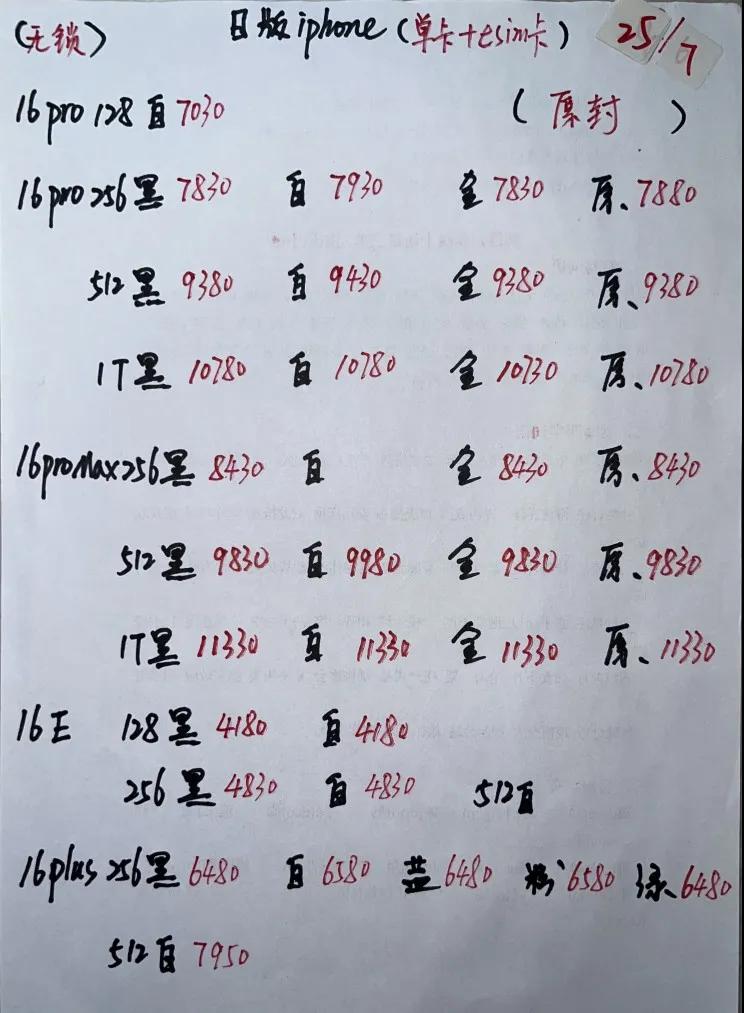 (无锁) 日版iphone (单卡+esim卡) 25/7
16pro 128 白 7030 (原封)
16pro 256 黑 7830 白 7930 金 7830 原、7880
512 黑 9380 白 9430 金 9380 原、9380
1T 黑 10780 白 10780 金 10730 原、10780
16proMax 256 黑 8430 白 金 8430 原、8430
512 黑 9830 白 9980 金 9830 原、9830
1T 黑 11330 白 11330 金 11330 原、11330
16E 128 黑 4180 白 4180
256 黑 4830 白 4830 512 白
16plus 256 黑 6480 白 6580 蓝 6480 粉 6580 绿 6480
512 白 7950